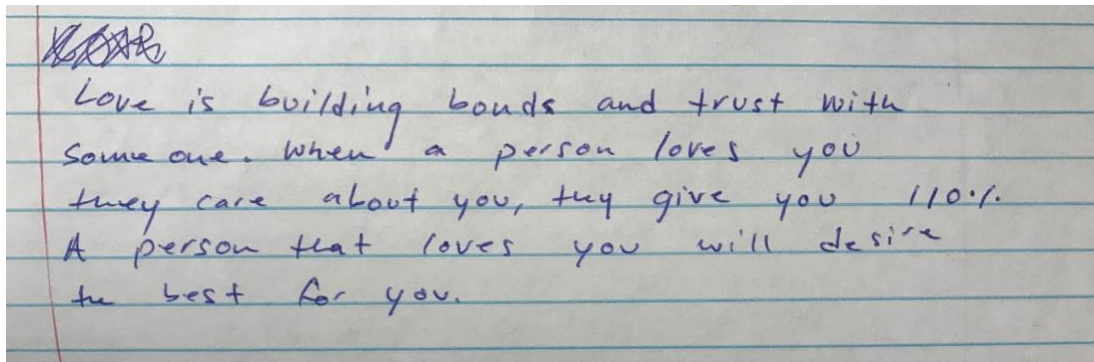 Love is building bonds and trust with
someone. When a person loves you
they care about you, they give you 110%.
A person that loves you will desire
the best for you.